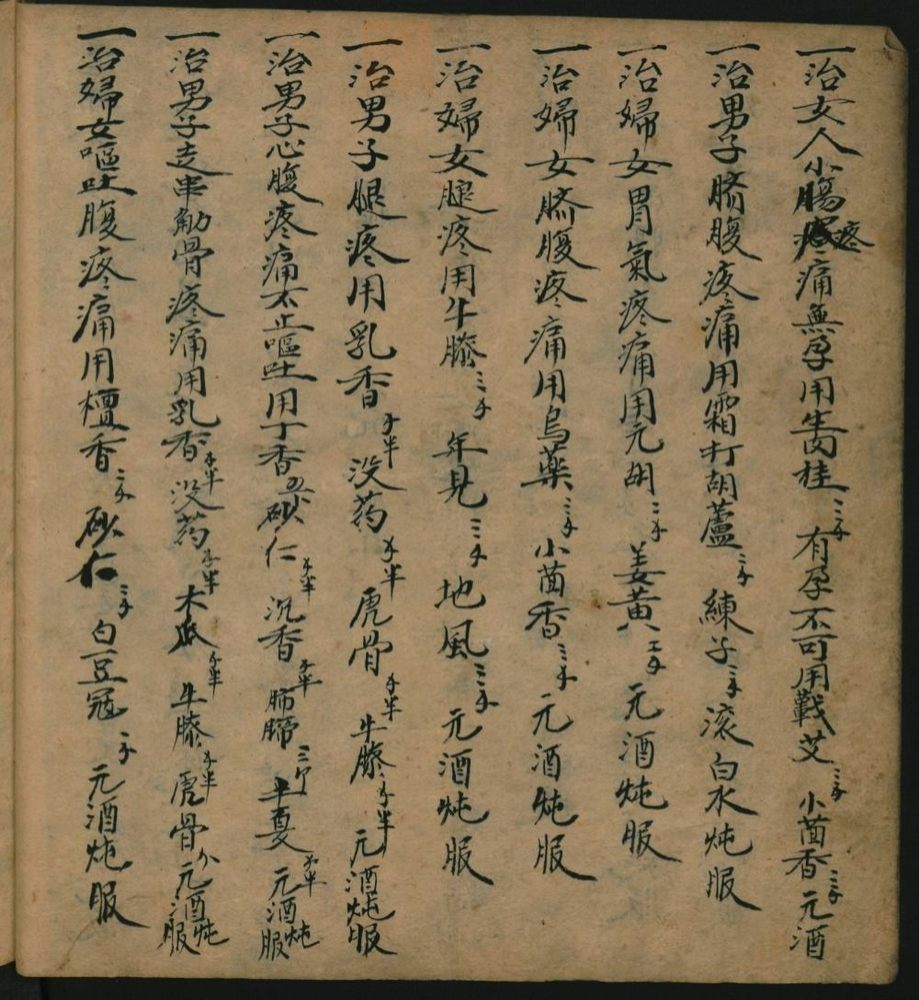 一治女人小腸疼痛無孕用生肉桂三錢 有孕不可用戰艾三錢 小茴香三錢元酒
一治男子臍腹疼痛用霜打胡蘆三錢 練子三錢滚白水炖服
一治婦女胃氣疼痛用元胡二錢 姜黃二錢元酒炖服
一治婦女臍腹疼痛用烏藥三錢小茴香三錢元酒炖服
一治婦女腿疼用牛膝三錢 年見三錢地風三錢元酒炖服
一治男子腿疼用乳香錢半 没药錢半 虎骨錢半 牛膝錢半 元酒炖服
一治男子心腹疼痛不止嘔吐用丁香 砂仁錢半 沉香錢半 三 半夏錢半 元酒炖服
一治男子走串觔骨疼痛用乳香錢半没药錢半 木瓜錢半 牛膝錢半虎骨 元酒炖服
一治婦女嘔吐腹疼痛用檀香三錢 砂仁三錢 白豆冦錢 元酒炖服